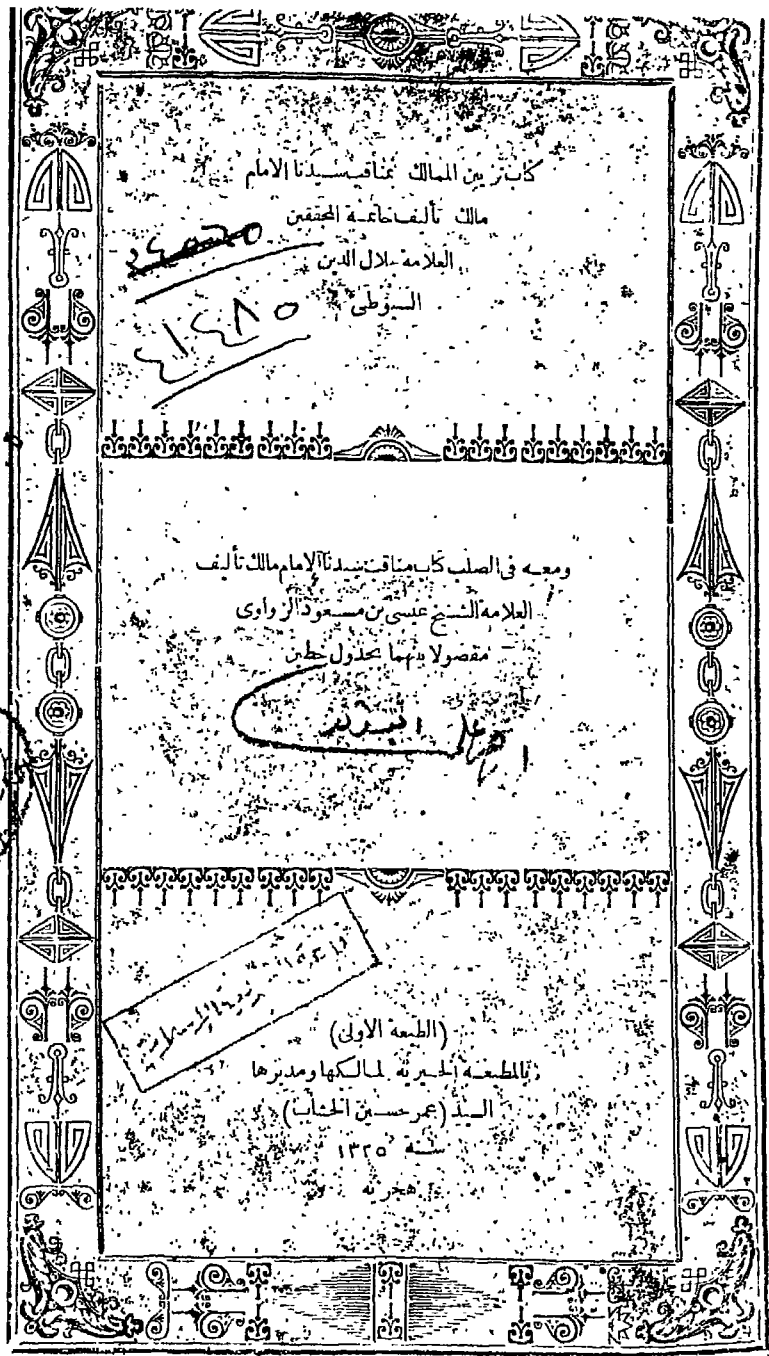 كتاب تزيين الممالك بمناقب سيدنا الامام
مالك تأليف خاتمة المحققين
العلامة جلال الدين
السيوطى
٢٤٥٦٥
٤١٤٨٥
ومعه فى الصلب كتاب مناقب سيدنا الامام مالك تأليف
العلامة الشيخ عيسى بن مسعود الزواوى
مفصولا بينهما بجدول
(الطبعة الاولى)
بالمطبعة الخيرية لمالكها ومديرها
السيد (عمر حسين الخشاب)
سنة ١٣٢٥
هجرية